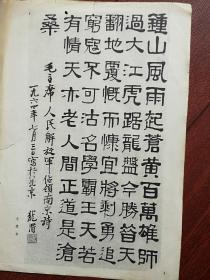 鍾山風雨起蒼黃百萬雄師
過大江虎踞龍盤今勝昔天
翻地覆慨而慷宜將剩勇追
窮寇不可沽名學霸王天若
有情天亦老人間正道是滄
桑
毛主席人民解放軍佔領南京詩
一九六四年七月三日寫於北京